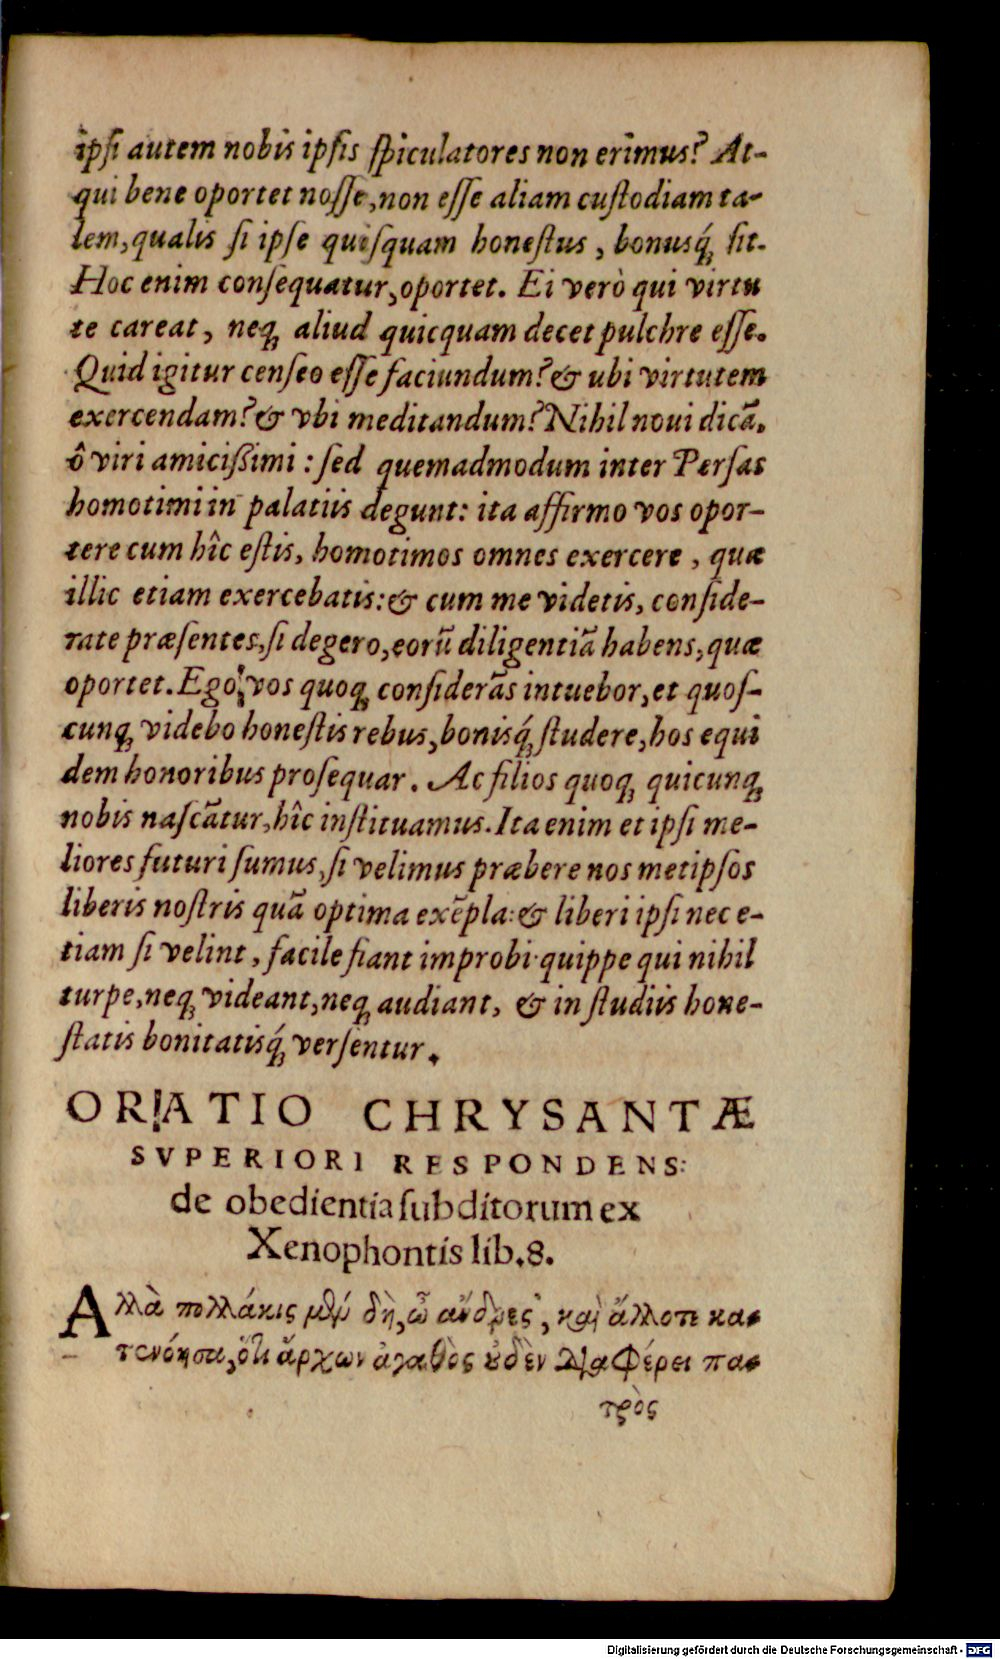 ipſi autem nobis ipſis ſpiculatores non erimus? At-
qui bene oportet noſſe, non eſſe aliam cuſtodiam ta-
lem, qualis ſi ipſe quiſquam honeſtus, bonusq́ꝫ ſit.
Hoc enim conſequatur, oportet. Ei verò qui virtu
te careat, neqꝫ aliud quicquam decet pulchre eſſe.
Quid igitur cenſeo eſſe faciundum? & ubi virtutem
exercendam? & vbi meditandum? Nihil noui dicā.
ô viri amicißimi: ſed quemadmodum inter Perſas
homotimi in palatiis degunt: ita affirmo vos opor-
tere cum hîc eſtis, homotimos omnes exercere, quæ
illic etiam exercebatis: & cum me videtis, conſide-
rate præſentes, ſi degero, eorū diligentiā habens, quæ
oportet. Ego vos quoqꝫ conſiderās intuebor, et quoſ-
cunqꝫ videbo honeſtis rebus, bonisq́ꝫ ſtudere, hos equi
dem honoribus proſequar. Ac filios quoqꝫ quicunqꝫ
nobis naſcātur, hîc inſtituamus. Ita enim et ipſi me-
liores futuri ſumus, ſi velimus præbere nos metipſos
liberis noſtris quā optima exēpla: & liberi ipſi nec e-
tiam ſi velint, facile fiant improbi· quippe qui nihil
turpe, neqꝫ videant, neqꝫ audiant, & in ſtudiis hone-
ſtatis bonitatisq́ꝫ verſentur.
ORATIO CHRYSANTÆ
SVPERIORI RESPONDENS:
de obedientia ſubditorum ex
Xenophontis lib. 8.
Αλλὰ πολλάκις μὲν δὴ, ὦ ἄνδρες, καὶ ἄλλοτε κα-
τενόησα, ὅτι ἄρχων ἀγαθὸς ȣδὲν διαφέρει πα-
τρὸς
Digitalisierung gefördert durch die Deutsche Forschungsgemeinschaft - DFG